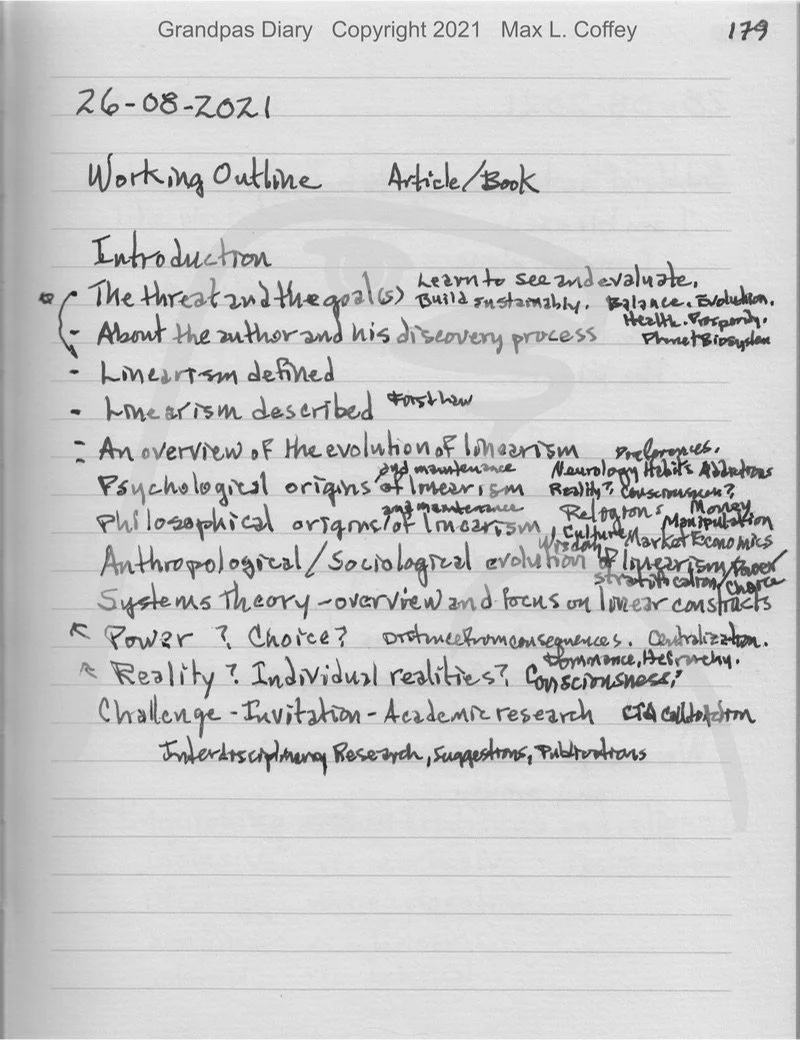 Grandpas Diary Copyright 2021 Max L. Coffey 179
26-08-2021
Working Outline Article/Book
Introduction
The threat and the goal(s) Learn to see and evaluate.
Build sustainably. Balance. Evolution.
Health. Prosperity.
- About the author and his discovery process Planet Biosystem
- Linearism defined
- Linearism described First law
- An overview of the evolution of linearism Preferences.
and maintenance Neurology Habits Addictions
Psychological origins of linearism Reality? Consciousness?
and maintenance Religions Money
Philosophical origins/of linearism, Culture Manipulation
Wisdom Market Economics
Anthropological/Sociological evolution of linearism/Power
stratification/Choice
Systems Theory - overview and focus on linear constructs
Power? Choice? Distance from consequences. Centralization.
Dominance, Heirarchy.
Reality? Individual realities? Consciousness?
Challenge - Invitation - Academic research CTA call to Action
Interdisciplinary Research, Suggestions, Publications